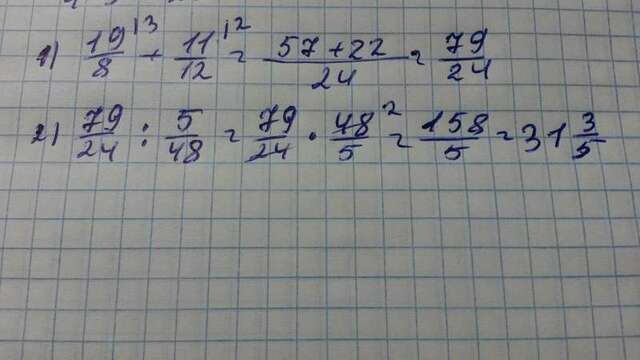 1) 19/8 |3 + 11/12 |2 = 57+22/24 = 79/24
2) 79/24 : 5/48 = 79/24 · 48/5 2 = 158/5 = 31 3/5